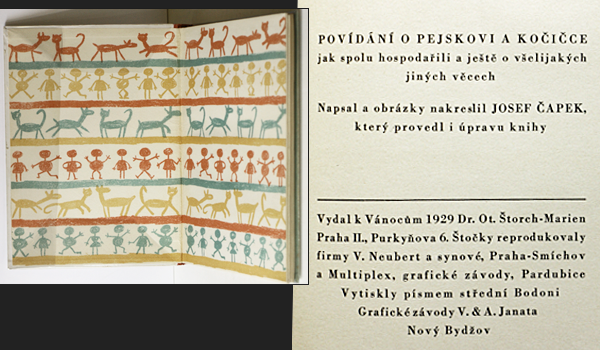 POVÍDÁNÍ O PEJSKOVI A KOČIČCE
jak spolu hospodařili a ještě o všelijakých
jiných věcech
Napsal a obrázky nakreslil JOSEF ČAPEK,
který provedl i úpravu knihy
Vydal k Vánocům 1929 Dr. Ot. Štorch-Marien
Praha II., Purkyňova 6. Štočky reprodukovaly
firmy V. Neubert a synové, Praha-Smíchov
a Multiplex, grafické závody, Pardubice
Vytiskly písmem střední Bodoni
Grafické závody V. & A. Janata
Nový Bydžov